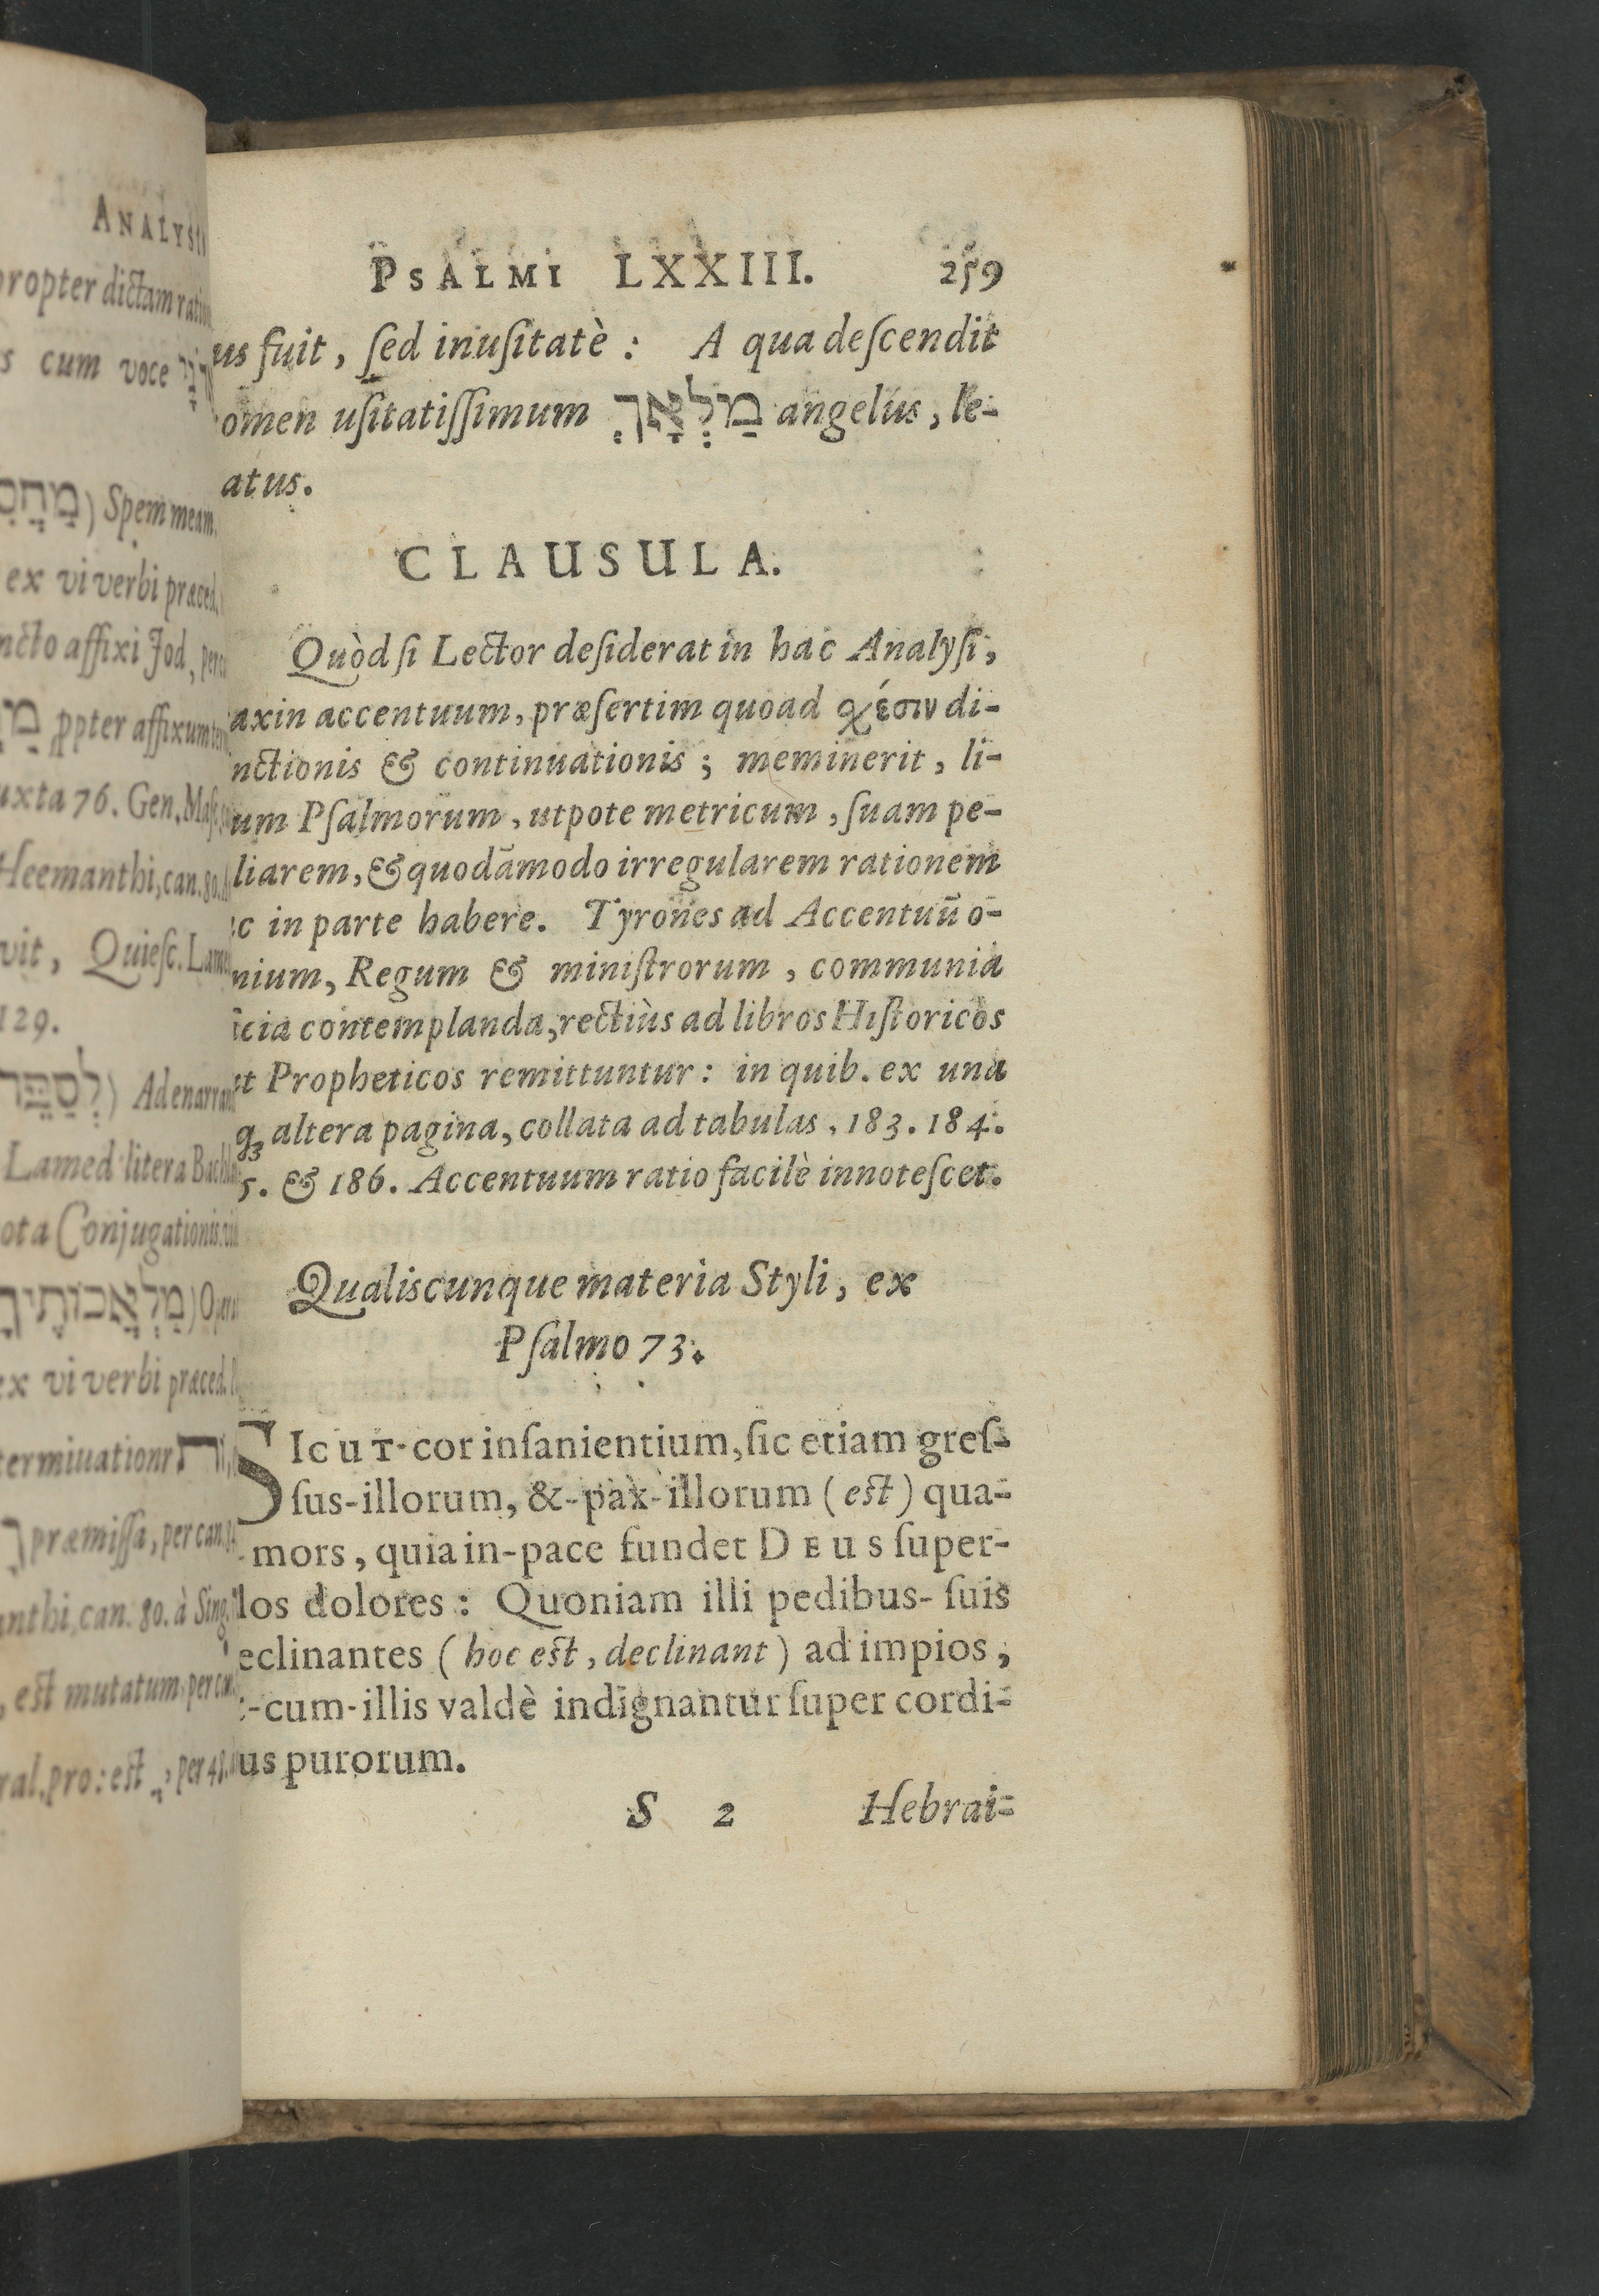 ANALYSIS
propter dictam ratio
s cum voce
Spem meam.
ex vi verbi præced.
ncto affixi Jod, per
ꝓpter affixum
uxta 76. Gen. Masc.
Heemanthi, can. 80.
vit, Quiesc. Lam
129.
לְסַפֵּר) Ad enarran
Lamed litera Bachl
ota Conjugationis
מַלְאֲכוֹתֶיךָ) Oper
ex vi verbi præced.
termiuationr
ך præmissa, per can.
anthi, can. 80. à Sing.
, est mutatum, per ca
ral. pro: est
PSALMI LXXIII. 259
us fuit, ſed inuſitatè: A qua deſcendit
omen uſitatiſſimum מַלְאָךְ angelus, le-
atus.
CLAUSULA.
Quòd ſi Lector deſiderat in hac Analyſi,
axin accentuum, præſertim quoad χέσιν di-
nctionis & continuationis; meminerit, li-
um Pſalmorum, utpote metricum, ſuam pe-
liarem, & quodāmodo irregularem rationem
c in parte habere. Tyrones ad Accentuū o-
nium, Regum & miniſtrorum, communia
icia contemplanda, rectiùs ad libros Hiſtoricos
t Propheticos remittuntur: in quib. ex una
q; altera pagina, collata ad tabulas, 183. 184.
5. & 186. Accentuum ratio facilè innoteſcet.
Qualiscunque materia Styli, ex
Pſalmo 73.
SICUT-cor inſanientium, ſic etiam greſ-
ſus-illorum, &-pax-illorum (est) qua-
mors, quia in-pace fundet DEUS ſuper-
los dolores: Quoniam illi pedibus-ſuis
eclinantes (hoc est, declinant) ad impios,
-cum-illis valdè indignantur ſuper cordi-
us purorum.
S 2 Hebrai-